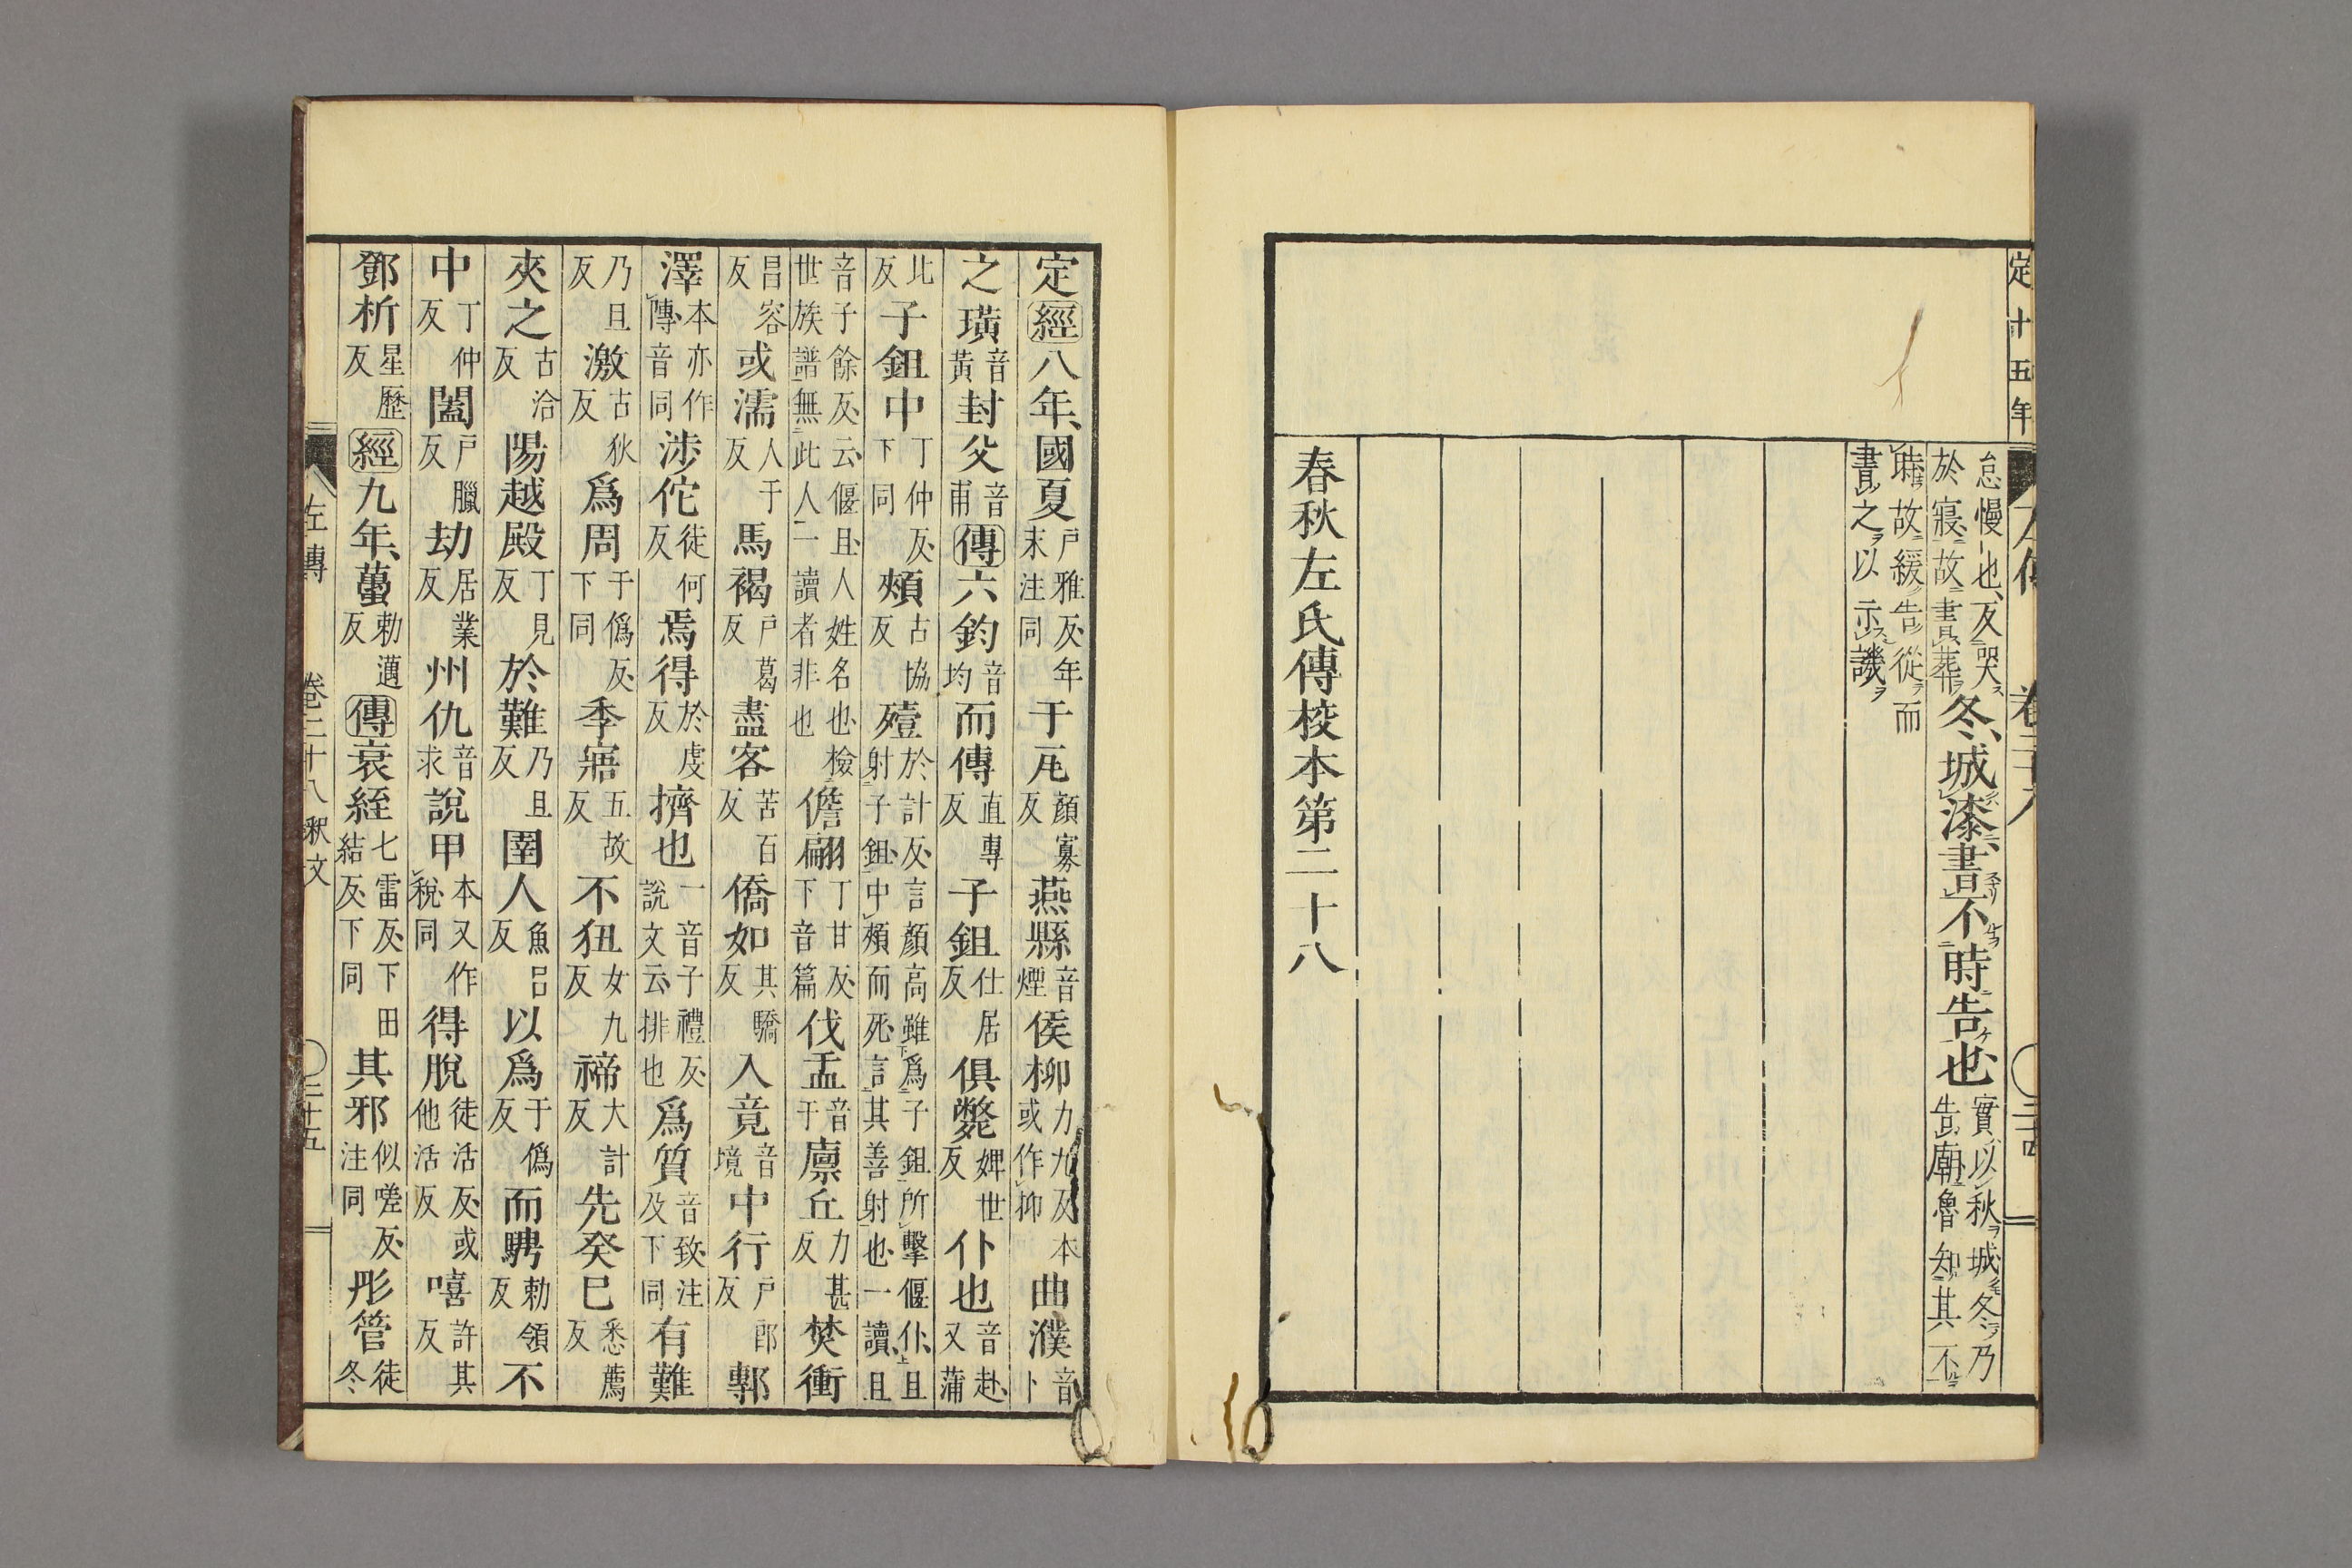 定十五年
左傳 卷二十八 三十四
怠慢也、反哭於寢、故書葬冬、城漆書不時告也實以秋城冬乃告廟魯知其不
時故緩告從而書之以示譏
春秋左氏傳校本第二十八
定經八年、國夏戶雅反、年末注同于瓦顏寡反燕縣音煙侯柳力九反本或作抑曲濮音卜
之璜音黃封父音甫傳六鈞音均而傳直專反子鉏仕居反俱斃婢世反仆也音赴、又蒲
北反子鉏中丁仲反、下同頰古協反殪於計反、言顏高雖爲子鉏所擊偃仆、且射子鉏、中頰而死、言其善射也、一讀、且
音子餘反、云、偃且、人姓名也、檢世族譜無此人一讀者非也儋翩丁甘反、下音篇伐盂音于廩丘力甚反焚衝
昌容反或濡人于反馬褐戶葛反盡客苦百反僑如其驕反入竟音境中行戶郎反鄟
澤本亦作傳音同涉佗徒何反焉得於虔反擠也一音子禮反、說文云、排也爲質音致、注及下同有難
乃且反激古狄反爲周于僞反、下同季寤五故反不狃女九反禘大計反先癸巳悉薦反
夾之古洽反陽越殿丁見反於難乃且反圉人魚呂反以爲于僞反而騁勅領反不
中丁仲反闔戶臘反劫居業反州仇音求說甲本又作稅同得脫徒活反、或他活反嘻許其反
鄧析星歷反經九年、蠆勅邁反傳衰絰七雷反、下田結反、下同其邪似嗟反、注同彤管徒冬
左傳 卷二十八釈文 三十五